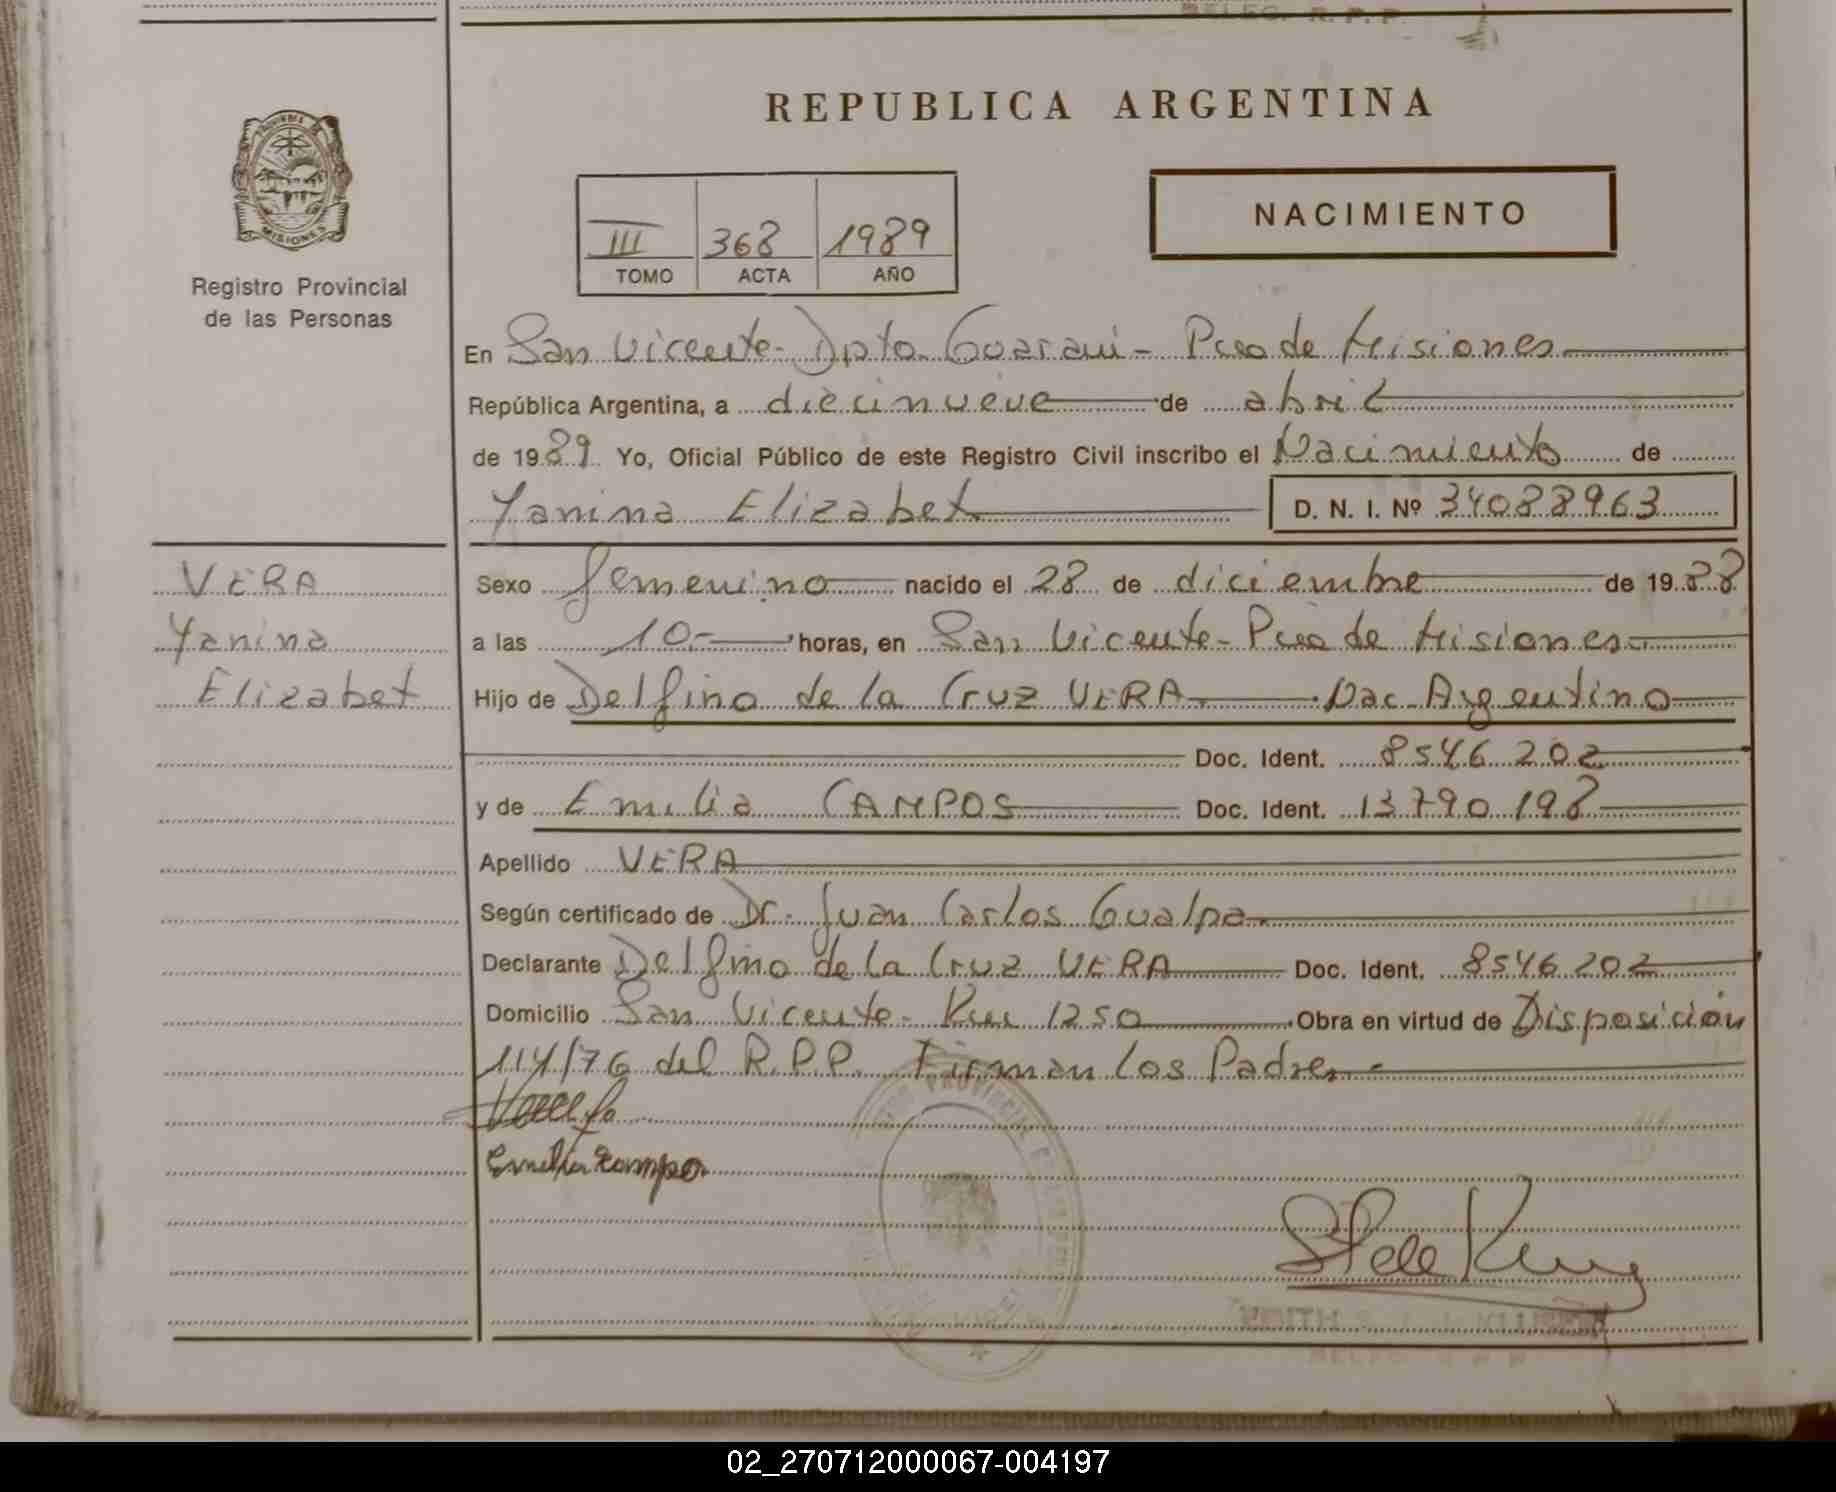 REPUBLICA ARGENTINA
PROVINCIA DE
MISIONES
Registro Provincial
de las Personas
NACIMIENTO
III 368 1989
TOMO ACTA AÑO
En San Vicente - Dpto. Guaraní - Pcia de Misiones
República Argentina, a diecinueve de abril
de 1989 Yo, Oficial Público de este Registro Civil inscribo el Nacimiento de
Yanina Elizabet D. N. I. Nº 34088963
VERA
Yanina
Elizabet
Sexo femenino nacido el 28 de diciembre de 1988
a las 10.- horas, en San Vicente - Pcia de Misiones.-
Hijo de Delfino de la Cruz VERA Nac. Argentino
Doc. Ident. 8546202
y de Emilia CAMPOS Doc. Ident. 13790198
Apellido VERA
Según certificado de Dr. Juan Carlos Gualpa.
Declarante Delfino de la Cruz VERA Doc. Ident. 8546202
Domicilio San Vicente - Km 1250 Obra en virtud de Disposición
114/76 del R.P.P. Firman los Padres.-
Emilia Campo
02_270712000067-004197